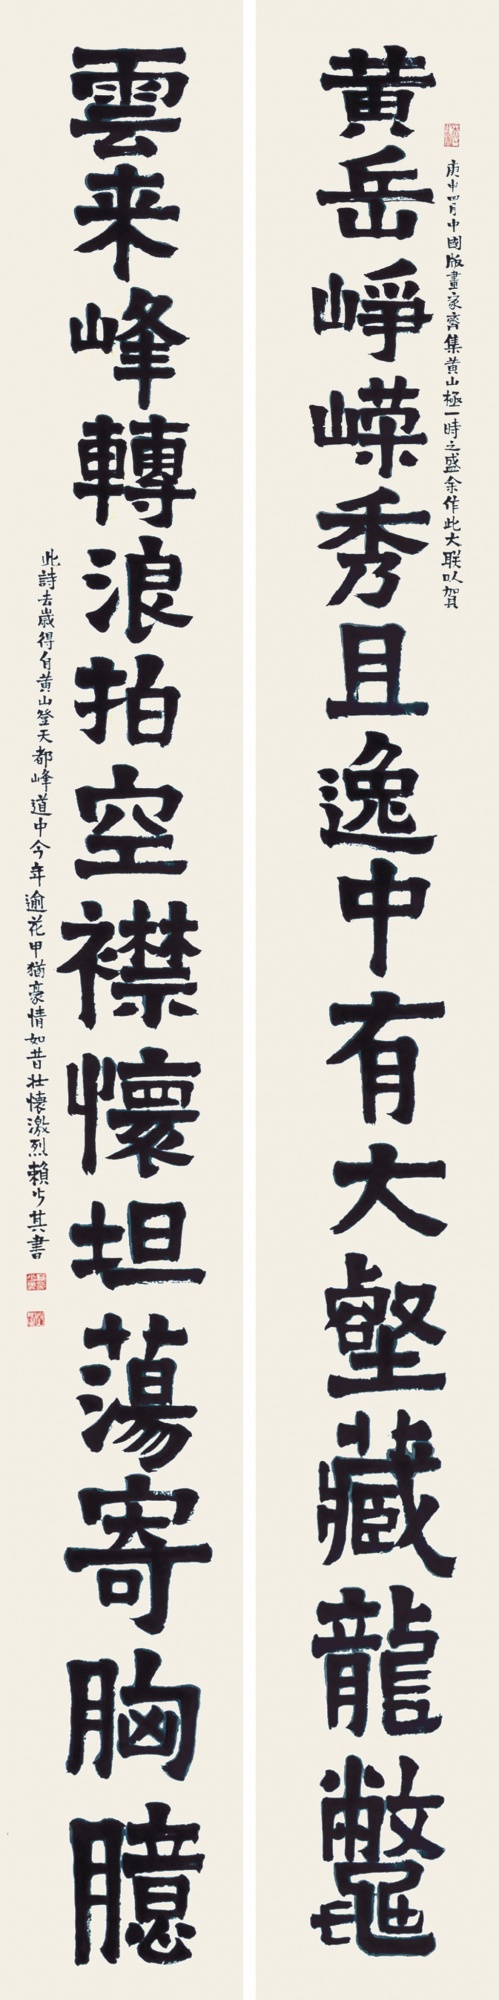 黄岳崢嶸秀且逸中有大壑藏龍鼈
庚申四月中國版畫家齊集黄山極一時之盛余作此大联以賀
雲来峰轉浪拍空襟懷坦蕩寄胸臆
此詩去歲得自黄山登天都峰道中今年逾花甲猶豪情如昔壯懷激烈賴少其書